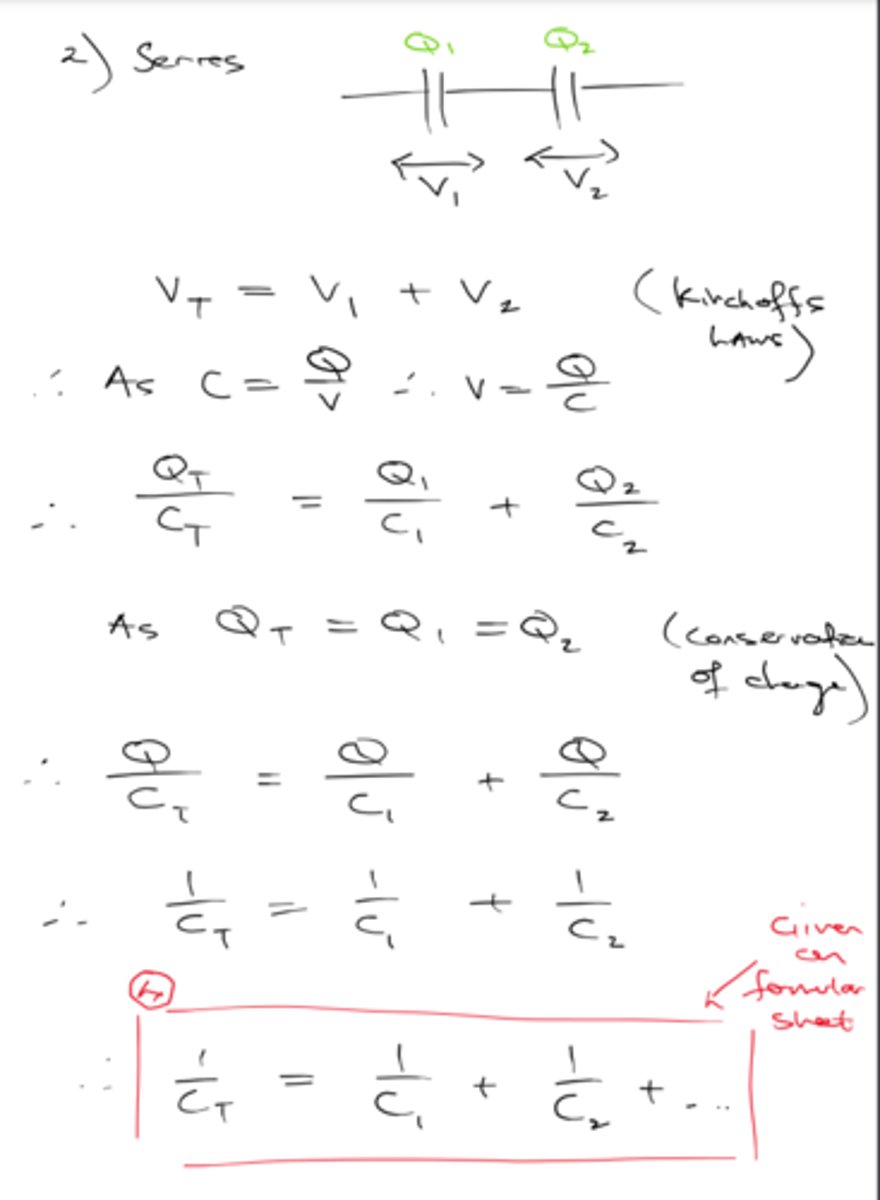 2) Series
Q₁ Q₂
V₁ V₂
V_T = V₁ + V₂ (Kirchoffs
LAWS)
∴ As C = Q/V ∴ V = Q/C
∴ Q_T/C_T = Q₁/C₁ + Q₂/C₂
As Q_T = Q₁ = Q₂ (conservation
of charge)
∴ Q/C_T = Q/C₁ + Q/C₂
∴ 1/C_T = 1/C₁ + 1/C₂
Given
on
formular
sheet
∴ 1/C_T = 1/C₁ + 1/C₂ + ...